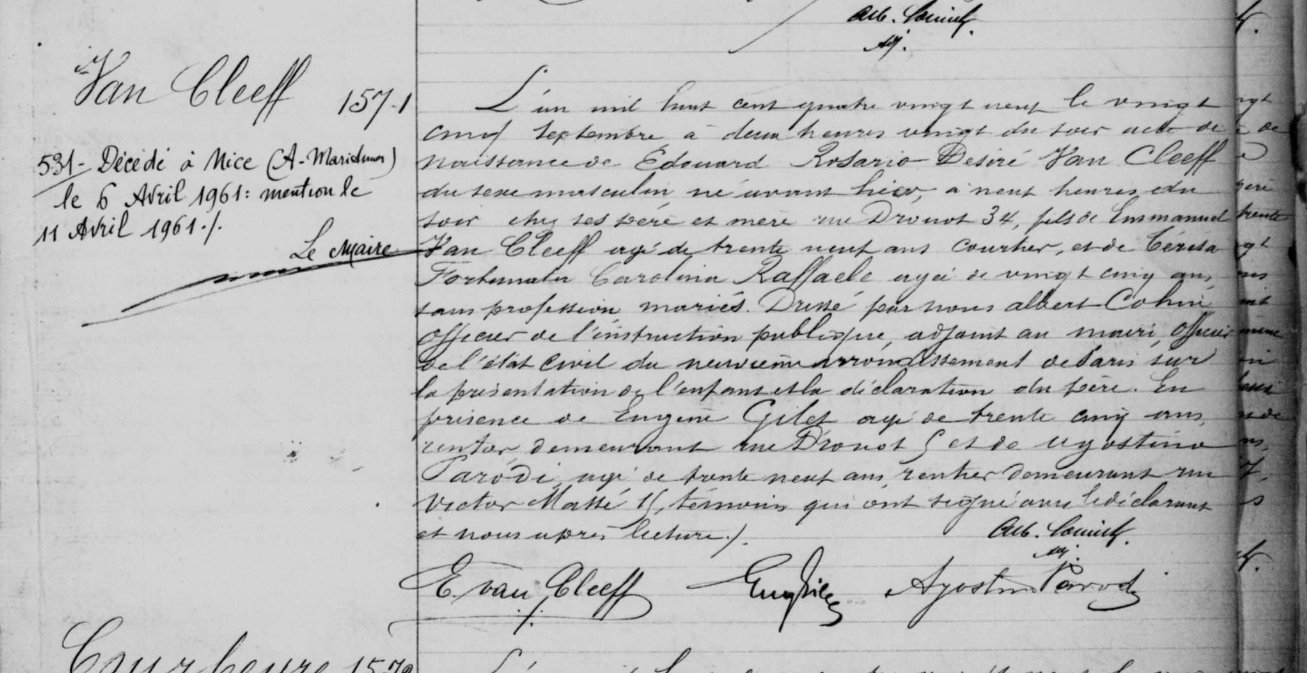 Alb. Couinh.
Adj.
Van Cleeff 1571
531- Décédé à Nice (A-Maritimes)
le 6 Avril 1961: mention le
11 Avril 1961./.
Le Maire
L'an mil huit cent quatre vingt neuf le vingt
cinq Septembre à deux heures vingt du soir acte de
naissance de Edouard Rosario Desiré Van Cleeff
du sexe masculin né avant hier, à neuf heures du
soir chez ses père et mère rue Drouot 34, fils de Emmanuel
Van Cleeff agé de trente neuf ans courtier, et de Térésa
Fortunata Carolina Raffaele agée de vingt cinq ans,
sans profession mariés. Dressé par nous albert
officier de l'instruction publique, adjoint au maire, officier
de l'état civil du neuvième arrondissement de Paris sur
la présentation de l'enfant et la déclaration du père. En
présence de Eugène Gilet agé de trente cinq ans,
rentier, demeurant rue Drouot 5 et de Agostino
Parodi, agé de trente neuf ans, rentier demeurant rue
Victor Massé 11, témoins qui ont signé avec le déclarant
et nous après lecture./.
Adj.
E. van Cleeff Agostino Parodi
1572